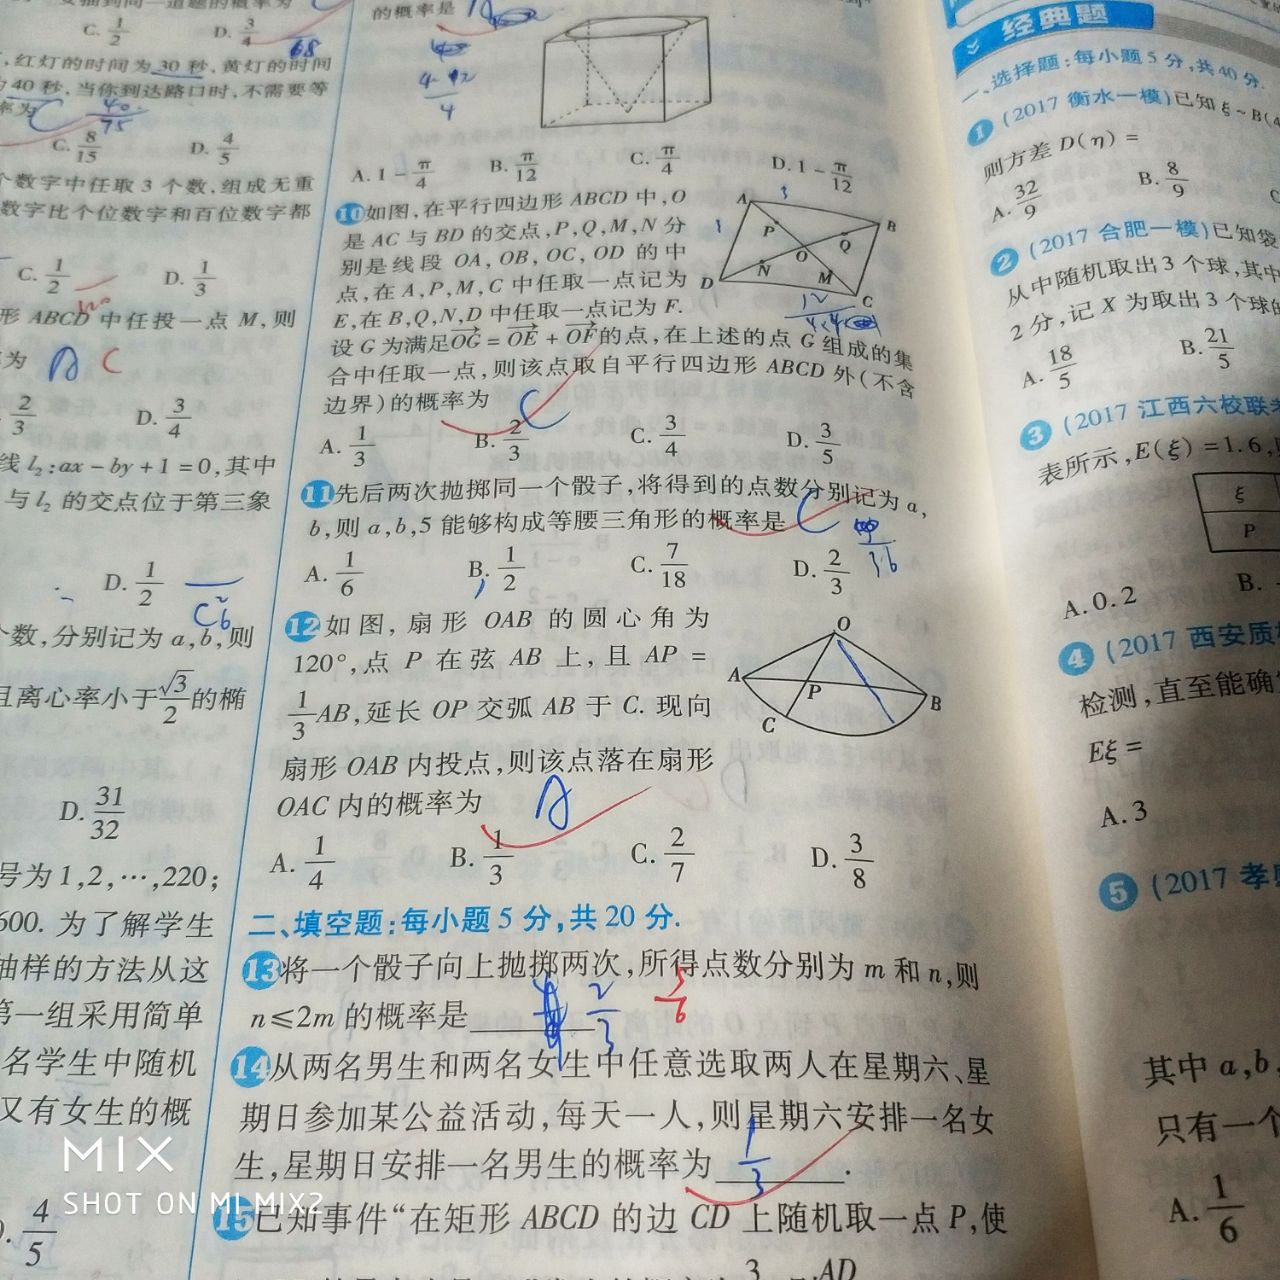 C. 1/2 D. 3/4
,红灯的时间为30秒,黄灯的时间
40秒,当你到达路口时,不需要等
率为 C 40/75
C. 8/15 D. 4/5
个数字中任取3个数,组成无重
数字比个位数字和百位数字都
C. 1/2 D. 1/3
形ABCD中任投一点M,则
为 A C
2/3 D. 3/4
线l₂:ax-by+1=0,其中
与l₂的交点位于第三象
D. 1/2
个数,分别记为a,b,则
且离心率小于√3/2的椭
D. 31/32
号为1,2,…,220;
600. 为了解学生
抽样的方法从这
第一组采用简单
名学生中随机
又有女生的概
4/5
MIX
SHOT ON MI MIX2
的概率是 A
A. 1-π/4 B. π/12 C. π/4 D. 1-π/12
10 如图,在平行四边形ABCD中,O
是AC与BD的交点,P,Q,M,N分
别是线段OA,OB,OC,OD的中
点,在A,P,M,C中任取一点记为
E,在B,Q,N,D中任取一点记为F.
设G为满足OG=OE+OF的点,在上述的点G组成的集
合中任取一点,则该点取自平行四边形ABCD外(不含
边界)的概率为 C
A. 1/3 B. 2/3 C. 3/4 D. 3/5
A B C D P Q O N M
11 先后两次抛掷同一个骰子,将得到的点数分别记为a,
b,则a,b,5能够构成等腰三角形的概率是 C
A. 1/6 B. 1/2 C. 7/18 D. 2/3
12 如图,扇形OAB的圆心角为
120°,点P在弦AB上,且AP=
1/3AB,延长OP交弧AB于C.现向
扇形OAB内投点,则该点落在扇形
OAC内的概率为 A
A. 1/4 B. 1/3 C. 2/7 D. 3/8
O A P B C
二、填空题:每小题5分,共20分.
13 将一个骰子向上抛掷两次,所得点数分别为m和n,则
n≤2m的概率是 2/3 5/6
14 从两名男生和两名女生中任意选取两人在星期六、星
期日参加某公益活动,每天一人,则星期六安排一名女
生,星期日安排一名男生的概率为 1/3 .
15 已知事件“在矩形ABCD的边CD上随机取一点P,使
经典题
一、选择题:每小题5分,共40分.
1 (2017衡水一模)已知ξ~B(4
则方差D(η)=
A. 32/9 B. 8/9 C
2 (2017合肥一模)已知袋
从中随机取出3个球,其中
2分,记X为取出3个球的
A. 18/5 B. 21/5
3 (2017江西六校联考
表所示,E(ξ)=1.6,
ξ
P
A. 0.2 B.
4 (2017西安质
检测,直至能确
Eξ=
A. 3
5 (2017孝
其中a,b
只有一个
A. 1/6